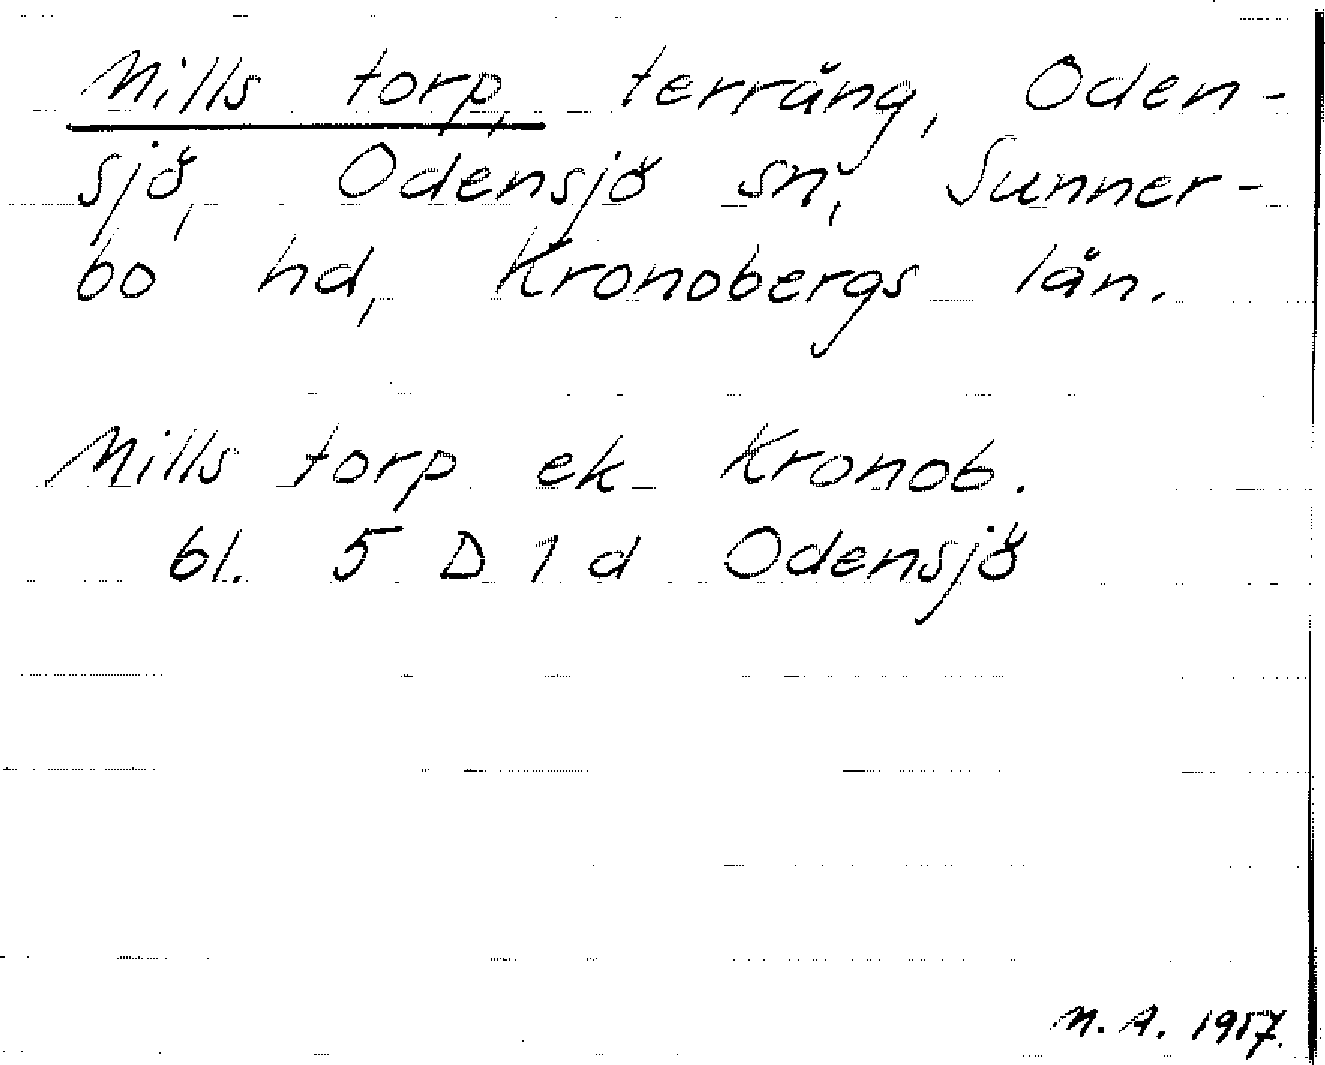 Mills torp, terräng, Oden-
sjö, Odensjö sn, Sunner-
bo hd, Kronobergs län.
Mills torp ek Kronob.
bl. 5 D 1 d Odensjö
M. A. 1957.